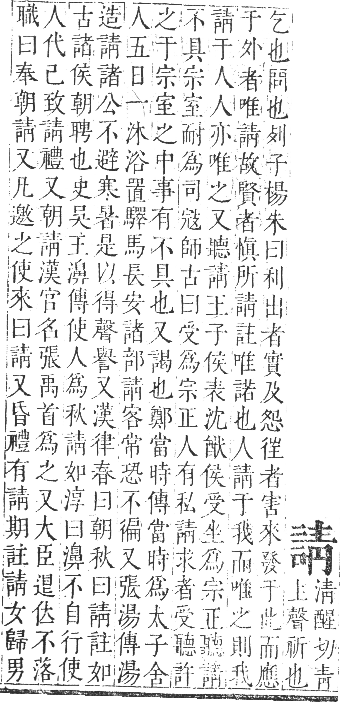 請清醒切青
上聲祈也
乞也問也列子楊朱曰利出者實及怨徃者害來發于此而應
于外者唯請故賢者慎所請註唯諾也人請于我而唯之則我
請于人人亦唯之又聽請王子侯表沈猷侯受坐為宗正聽請
不具宗室耐為司寇師古曰受為宗正人有私請求者受聽許
之于宗室之中事有不具也又謁也鄭當時傳當時為太子舍
人五日一沐浴置驛馬長安諸部請客常恐不徧又張湯傳湯
造請諸公不避寒暑是以得聲譽又漢律春曰朝秋曰請註如
古諸侯朝聘也史吳王濞傳使人為秋請如淳曰濞不自行使
人代己致請禮又朝請漢官名張禹首為之又大臣退佚不落
職曰奉朝請又凡邀之使來曰請又昏禮有請期註請女歸男